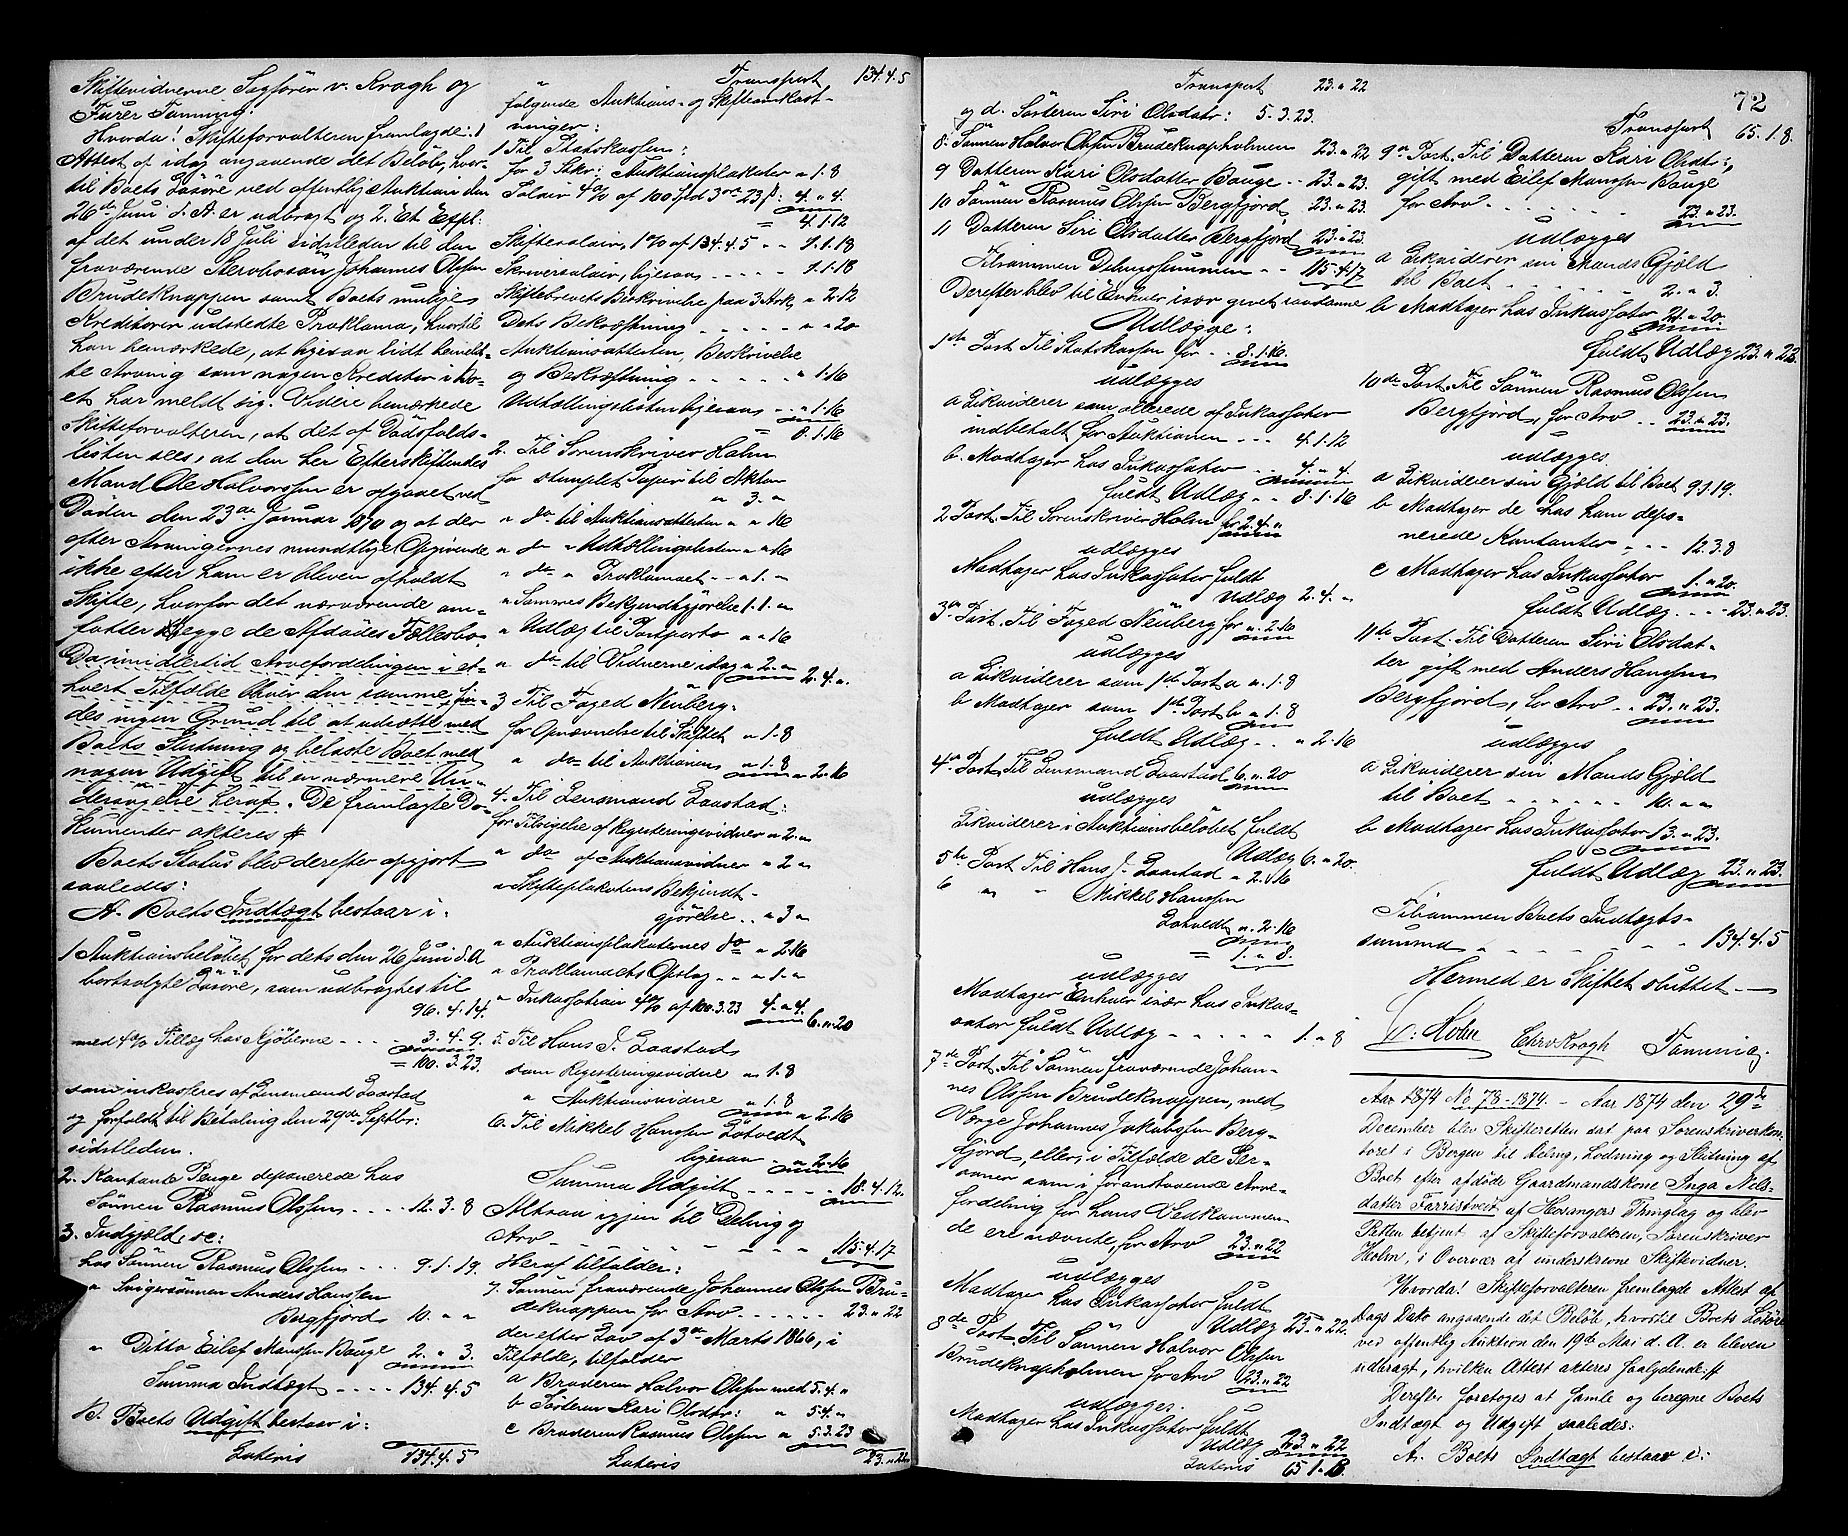 Skiftevidnerne Sagfører v. Krogh og
Furer Tømming.
Hvorda! Skifteforvalteren fremlagde: 1
Attest af idag angaaende det Beløb, hvor-
til Boets Løsøre ved offentlig Auktion den
26de Juni d. A. er udbragt og 2. Et Expl:
af det under 18 Juli sidstleden til den
fraværende Stervbosøn Johannes Olssen
Brudeknappen samt Boets mulige
Kreditorer udstedte Proklama, hvortil
han bemærkede, at ligesaa lidt
Arving som nogen Kreditor i Bo-
et har meldt sig. Videre bemærkede
Skifteforvalteren, at det af Dødsfalds-
listen sees, at den her Efterskiftendes
Mand Ole Halvorssen er afgaaet ved
Døden den 23de Januar 1870 og at der
efter Arvingernes mundtlige Opgivende
ikke efter ham er bleven afholdt
Skifte, hvorfor det nærværende om-
fatter begge de Afdødes Fællesbo.
Da imidlertid Arvefordelingen i et-
hvert Tilfælde bliver den samme, fin-
des ingen Grund til at udsætte med
Boets Slutning og belaste Boet med
nogen Udgift til en nærmere Un-
dersøgelse heraf. De fremlagte Do-
kumenter akteres
Boets Status blev derefter opgjort
saaledes:
A. Boets Indtægt bestaar i:
1 Auktionsbeløbet for dets den 26 Juni d. A
bortsolgte Løsøre, som udbragtes til
96. 4. 14.
med 4% Tillæg hos Kjøberne - - - 3. 4. 9.
= 100. 3. 23.
som inkasseres af Lensmand Laastad
og forfaldt til Betaling den 29de Septbr:
sidstleden.
2. Kontante Penge deponerede hos
Sønnen Rasmus Olssen - - - - 12. 3. 8
3. Indgjæld, se:
hos Sønnen Rasmus Olssen - - - 9. 1. 19.
" Svigersønnen Anders Hanssen
Bergfjord 10. " "
" Ditto Eilef Monssen Bauge 2. " 3.
Summa Indtægt - - - - 134. 4. 5
B. Boets Udgift bestaar i:
Lateris 134. 4. 5
Transport 134. 4. 5
følgende Auktions- og Skifteomkost-
ninger:
1 Til Statskassen:
for 3 Stkr: Auktionsplakater " 1. 8
Salair 4% of 100 Spd 3 ort 23 s: 4. " 4.
= 4. 1. 12
Skiftesalair, 1% af 134. 4. 5 - - 1. 1. 18
Skriversalair, ligesaa - - - - - 1. 1. 18
Skiftebrevets Beskrivelse paa 3 Ark " 2. 12
Dets Bekræftning - - - - - " " 20
Auktionsattesten, Beskrivelse
og Bekræftning - - - - - " 1. 16
Udtællingslisten ligesaa - - " 1. 16
= 8. 1. 16
2. Til Sorenskriver Holm
for stemplet Papir til Akten
" 3. "
" do til Auktionsattesten " " 16
" do " Udtællingslisten " " 16
" do " Proklamaet - - " 1. "
" Sammes Bekjendtgjørelse 1. 1. "
" Udlæg til Postporto " " 16
" do til Vidnerne idag " 2. "
2. 4. ".
3 Til Foged Neuberg.
for Opnævnelse til Skiftet " 1. 8
" do til Auktionen " 1. 8 " 2. 16
4. Til Lensmand Laastad:
for Tilsigelse af Registeringsvidner " 2. "
" do af Auktionsvidner " 2. "
" Skifteplakatens Bekjendt-
gjørelse .. " 3 "
" Auktionsplakaternes do " 2. 16
" Proklamaets Opslag .. " 1. "
" Inkassation 4% af 100. 3. 23 4. " 4. 6. " 20
5. Til Hans J. Laastad
som Registeringsvidne " 1. 8
" Auktionsvidne " 1. 8 " 2. 16
6. Til Mikkel Hanssen Løtvedt
ligesaa - " 2. 16
Summa Udgift - - - - 18. 4. 12.
Altsaa igjen til Deling og
Arv - - - - - - - 115. 4. 17
Heraf tilfalder:
7. Sønnen fraværende Johannes Olssen Bru-
deknappen for Arv - - - - - 23. " 22
den efter Lov af 3die Marts 1866, i
Tilfælde, tilfalder
a Broderen Halvor Olssen med 5. 4. "
b Søsteren Kari Olsdtr: " 5. 4. "
c Broderen Rasmus Olssen " 5. 3. 23
Lateris 23. " 22
72
Transport 23. " 22
og d. Søsteren Siri Olsdatr: 5. 3. 23.
8. Sønnen Halvor Olssen Brudeknapholmen 23. " 22
9 Datteren Kari Olsdatter Bauge - - 23. " 23.
10 Sønnen Rasmus Olssen Bergfjord 23. " 23.
11 Datteren Siri Olsdatter Bergfjord 23. " 23.
Tilsammen Delingssummen - - 115. 4. 17
Derefter blev til Enhver især gjort saadanne
Udlægge:
1ste Post Til Statskassen for - - 8. 1. 16.
udlægges
a Likviderer som allerede af Inkassator
indbehalt for Auktionen - - - 4. 1. 12
b. Modtager hos Inkassator - - 4. " 4.
fuldt Udlæg - - 8. 1. 16
2 Post. Til Sorenskriver Holm for 2. 4. "
udlægges
Modtager hos Inkassator fuldt
Udlæg 2. 4. "
3die Post. Til Foged Neuberg for " 2. 16
udlægges
a Likviderer som 1ste Post a " 1. 8
b Modtager som 1ste Post b " 1. 8
fuldt Udlæg - - " 2. 16
4de Post. Til Lensmand Laastad 6. " 20
udlægges
Likviderer i Auktionsbeløbet fuldt
Udlæg 6. " 20.
5te Post Til Hans J. Laastad " 2. 16
6 " " Mikkel Hanssen
Løtvedt " 2. 16
= 1. " 8.
udlægges
Modtager Enhver især hos Inkas-
sator fuldt Udlæg - - - - - 1. " 8
7de Post. Til Sønnen fraværende Johan-
nes Olssen Brudeknappen, med
Værge Johannes Jakobssen Berg-
fjord, eller, i Tilfælde de Per-
soner som i foranstaaende Arve-
fordeling for hans Vedkommen-
de ere nævnte, for Arv 23. " 22
udlægges
Modtager hos Inkassator fuldt
Udlæg 23. " 22.
8de Post Til Sønnen Halvor Olssen
Brudeknapholmen for Arv 23. " 22
udlægges.
Modtager hos Inkassator fuldt
Udlæg 23. " 22
Lateris 65 1. 8.
Transport 65. 1. 8.
9de Post. Til Datteren Kari Olsdtr:,
gift med Eilef Monssen Bauge
for Arv - - - - - - 23. " 23.
udlægges
a Likviderer sin Mands Gjæld
til Boet - - - - - - 2. " 3.
b Modtager hos Inkassator 21. " 20.
fuldt Udlæg 23. " 23
10de Post. Til Sønnen Rasmus Olssen
Bergfjord, for Arv - - 23. " 23.
udlægges.
a Likviderer sin Gjæld til Boet 9. 1. 19.
b Modtager de hos ham depo-
nerede Kontanter - - - 12. 3. 8
c Modtager hos Inkassator 1. " 20.
fuldt Udlæg - - - 23. " 23.
11te Post. Til Datteren Siri Olsdat-
ter gift med Anders Hanssen
Bergfjord, for Arv - - 23. " 23.
udlægges
a Likviderer sin Mands Gjæld
til Boet - - - - - - 10. " "
b Modtager hos Inkassator 13. " 23.
fuldt Udlæg 23. " 23.
Tilsammen Boets Indtægts-
summa - - - - - - 134. 4. 5
Hermed er Skiftet sluttet
Holm Chr v Krogh Tømming.
Aar 1874 No 78-1874. - Aar 1874 den 29de
December blev Skifteretten sat paa Sorenskriverkon-
toret i Bergen til Deling, Lodning og Slutning af
Boet efter afdøde Gaardmandskone Inga Nels-
datter Farristveit af Hosangers Thinglag og blev
Retten betjent af Skifteforvalteren, Sorenskriver
Holm, i Overvær af underskrevne Skiftevidner.
Hvorda! Skifteforvalteren fremlagde Attest af
Dags Dato angaaende det Beløb, hvortil Boets Løsøre
ved offentlig Auktion den 19de Mai d. A. er bleven
udbragt, hvilken Attest akteres saalydende:
Derefter foretoges at samle og beregne Boets
Indtægt og Udgift saaledes:
A. Boets Indtægt bestaar i: